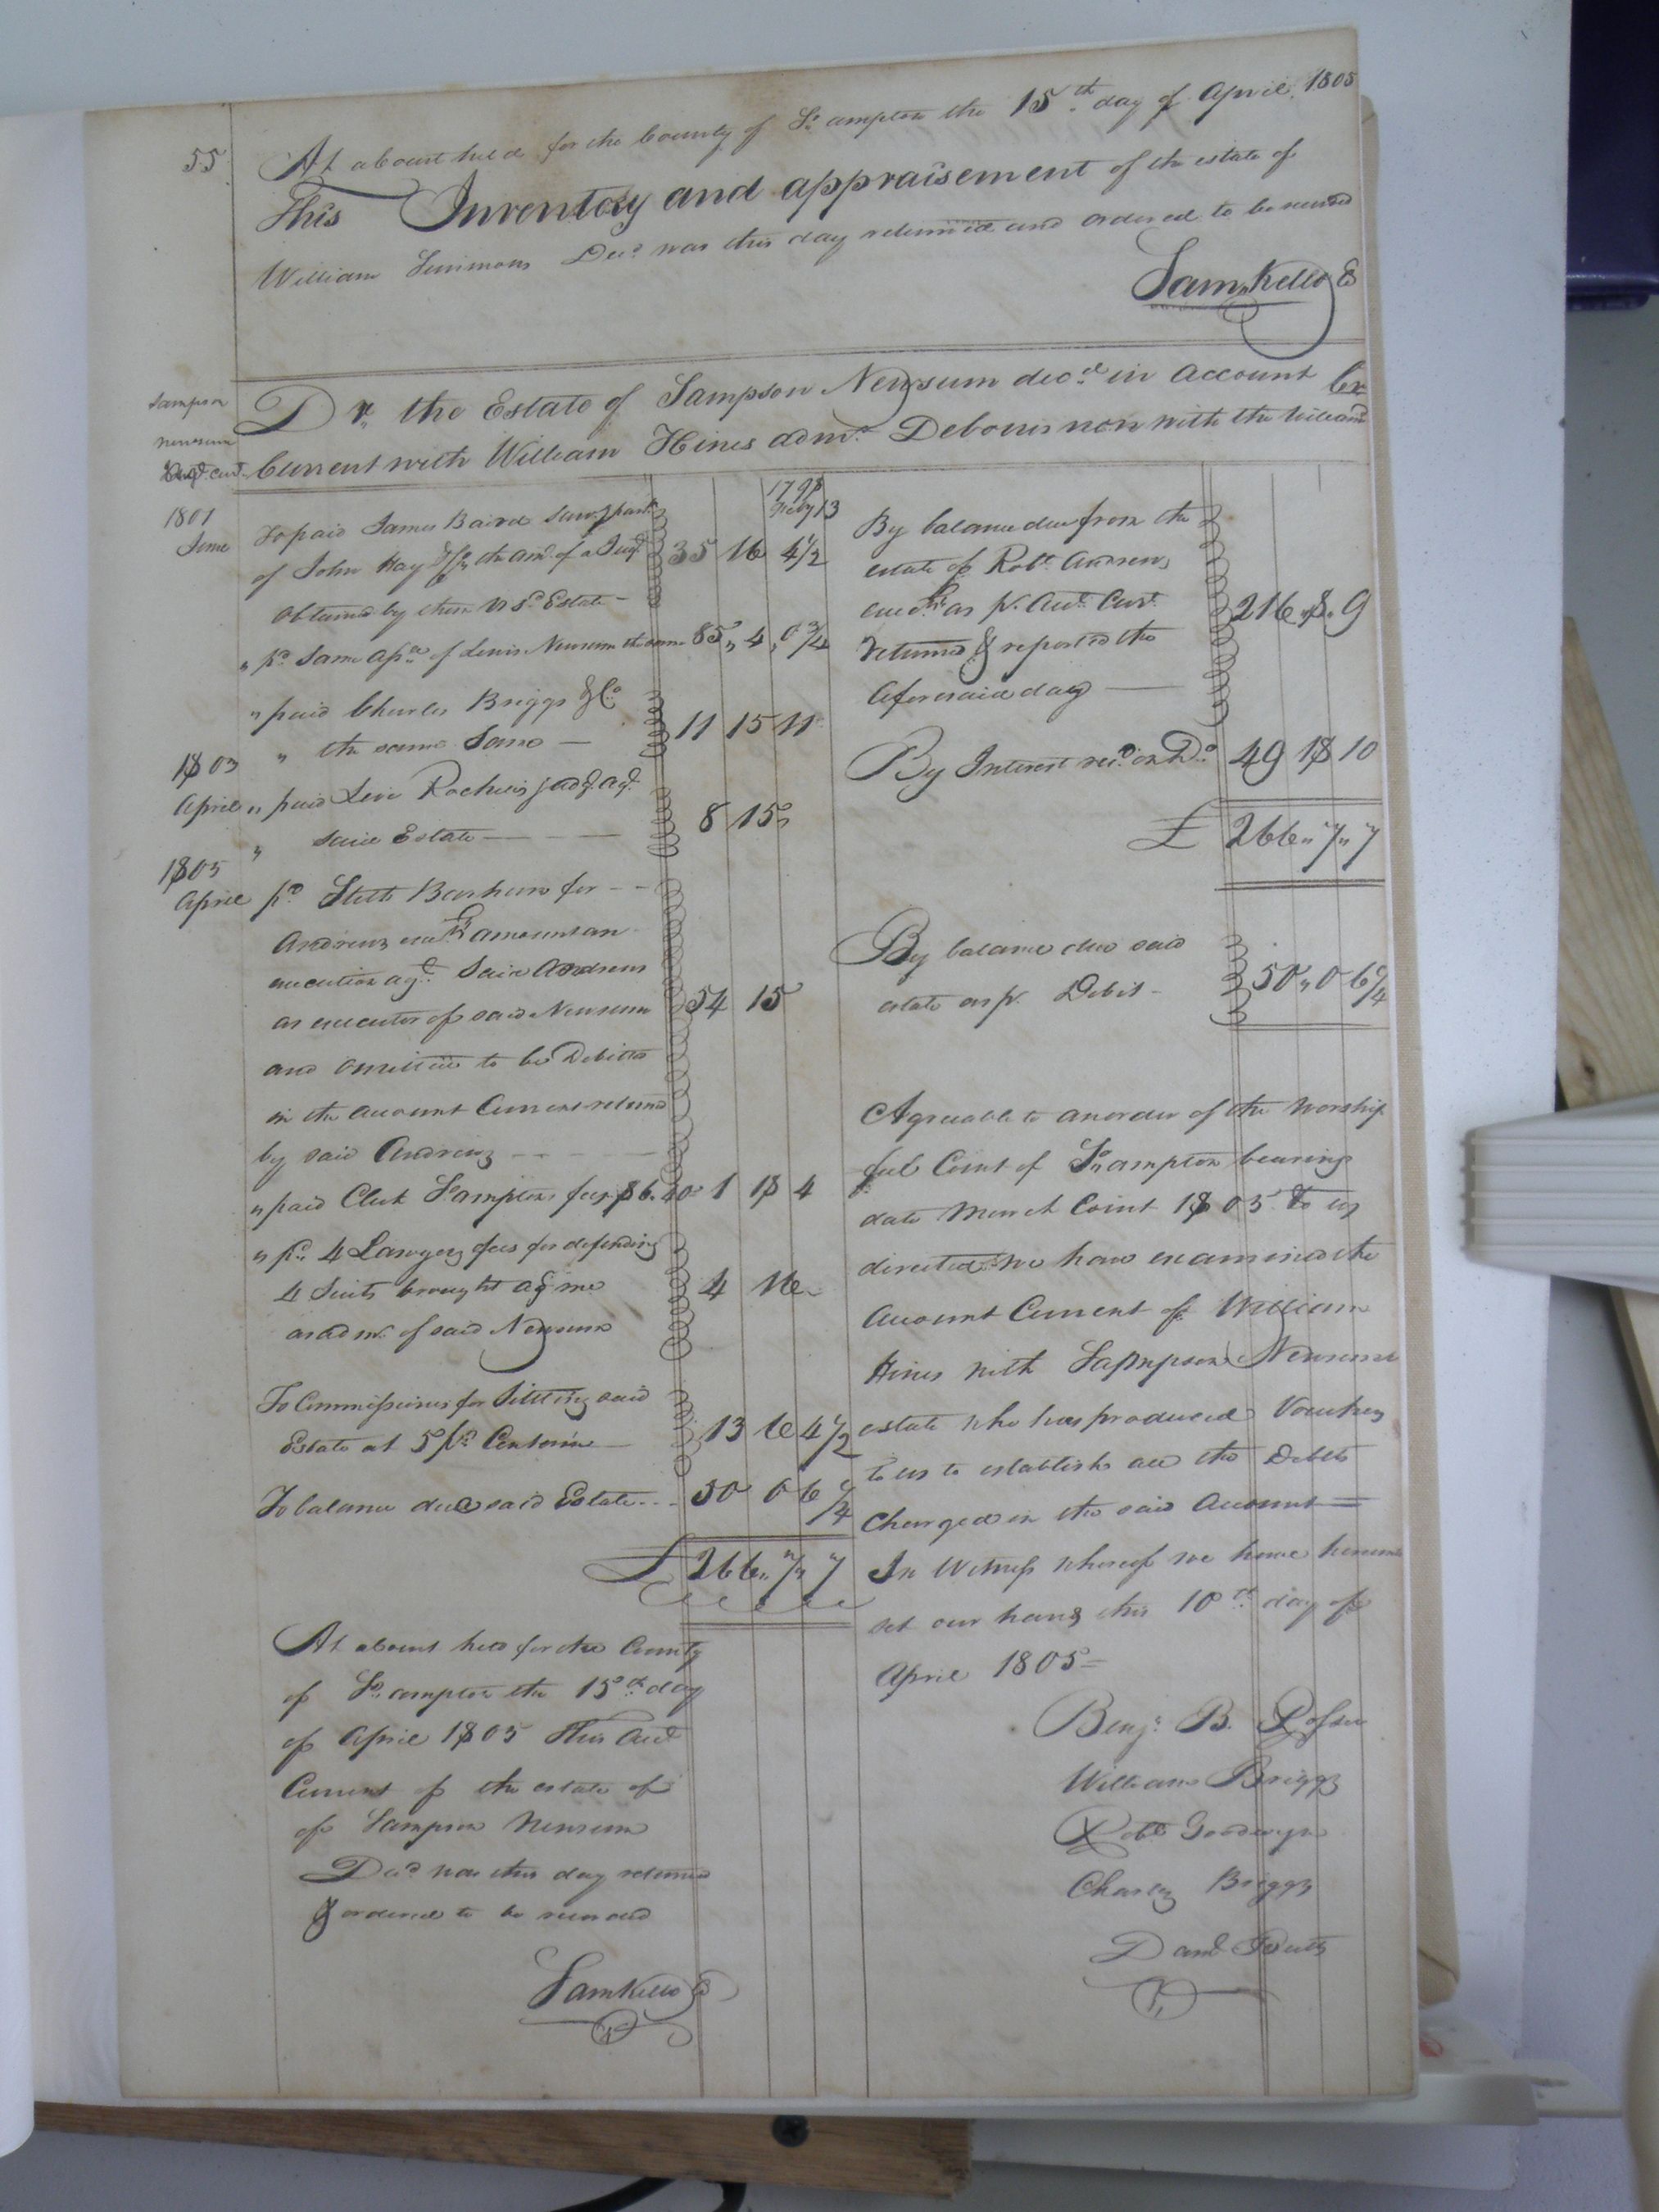 55
At a Court held for the County of So. ampton the 15th day of April 1805
This Inventory and appraisement of the estate of
William Simmons Decd. was this day returned and ordered to be recorded
Sam. Kello C
Sampson
Newsum
Acct. Curt.
Dr. the Estate of Sampson Newsum decd. in Account Cr.
Current with William Hines admr. Debonis non with the Will annd.
1801
June
To paid James Baird Survg. part.
of John Hay & Co. the amt. of a Judgt.
obtained by them vs sd. Estate —
35 16 4 1/2
" pd. Same of Lewis Newsum the same 85 " 4 " 0 3/4
" paid Charles Briggs & Co.
" the same Same —
11 15 11
1803
April
" paid Levi Rocheis judgt. agt.
" said Estate — — —
8 15
1805
April
pd. Stith Barham for - -
Andrews exor. amount an
execution agt. Said Andrews
as executor of said Newsum
54 15
and omitted to be Debited
in the Account Current returned
by said Andrews - - - -
" paid Clerk So. amptons fees $6.40 1 18 4
" pd. 4 Lawyers fees for defending
4 Suits brought agt. me
as admr. of said Newsum
4 16
To Commissions for Settling said
Estate at 5 pr. Centum —
13 6 4 1/2
To balance due said Estate - - - 50 0 6 1/4
£ 266 " 7 " 7
At a Court held for the County
of So. ampton the 15th day
of April 1805 This Acct.
Current of the estate of
of Sampson Newsum
Decd. was this day returned
& ordered to be recorded
Sam Kello C
1798
Feby 13
By balance due from the
estate of Robt. Andrews
as pr. Acct. Curt.
returned & reported the
aforesaid day —
216 " 8 " 9
By Interest recd. on Do. 49 18 10
£ 266 " 7 " 7
By balance due said
estate as pr. Debit -
50 " 0 6 1/4
Agreeable to an order of the Worship
ful Court of So. ampton bearing
date March Court 1805 to us
directed we have examined the
Account Current of William
Hines with Sampson Newsums
estate who has produced Vouchers
to us to establish all the Debts
Charged in the said Account =
In Witness whereof we have hereunto
set our hands this 10th day of
April 1805 =
Benj. B.
William Briggs
Robt. Goodwyn
Charles Briggs